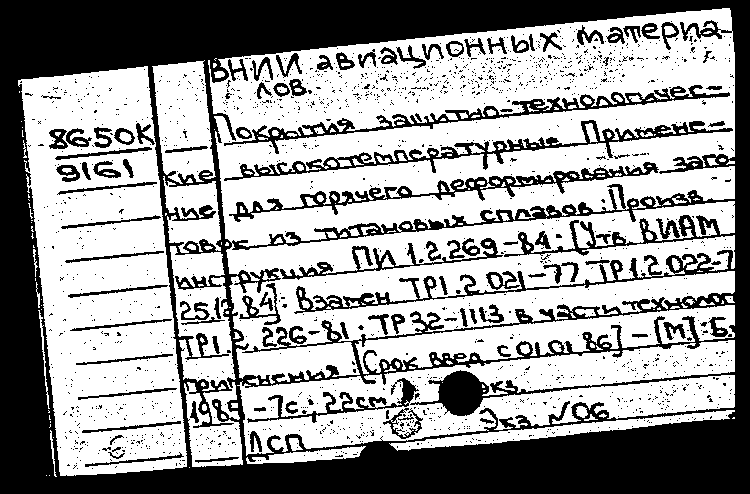 ВНИИ авиационных материа-
лов.
86.50К Покрытия защитно-технологичес-
9161 кие высокотемпературные Примене-
ние для горячего деформирования заго-
товок из титановых сплавов: Произв.
инструкция ПИ 1.2.269-84: [Утв. ВИАМ
25.12.84]: Взамен ТР1.2.021-77, ТР1.2.022-7
ТР1.2.226-81; ТР32-1113 в части технолог
применения: [Срок введ с 01.01.86] - [М]: Б.
1985. - 7с.; 22см экз.
Экз. №06
ДСП